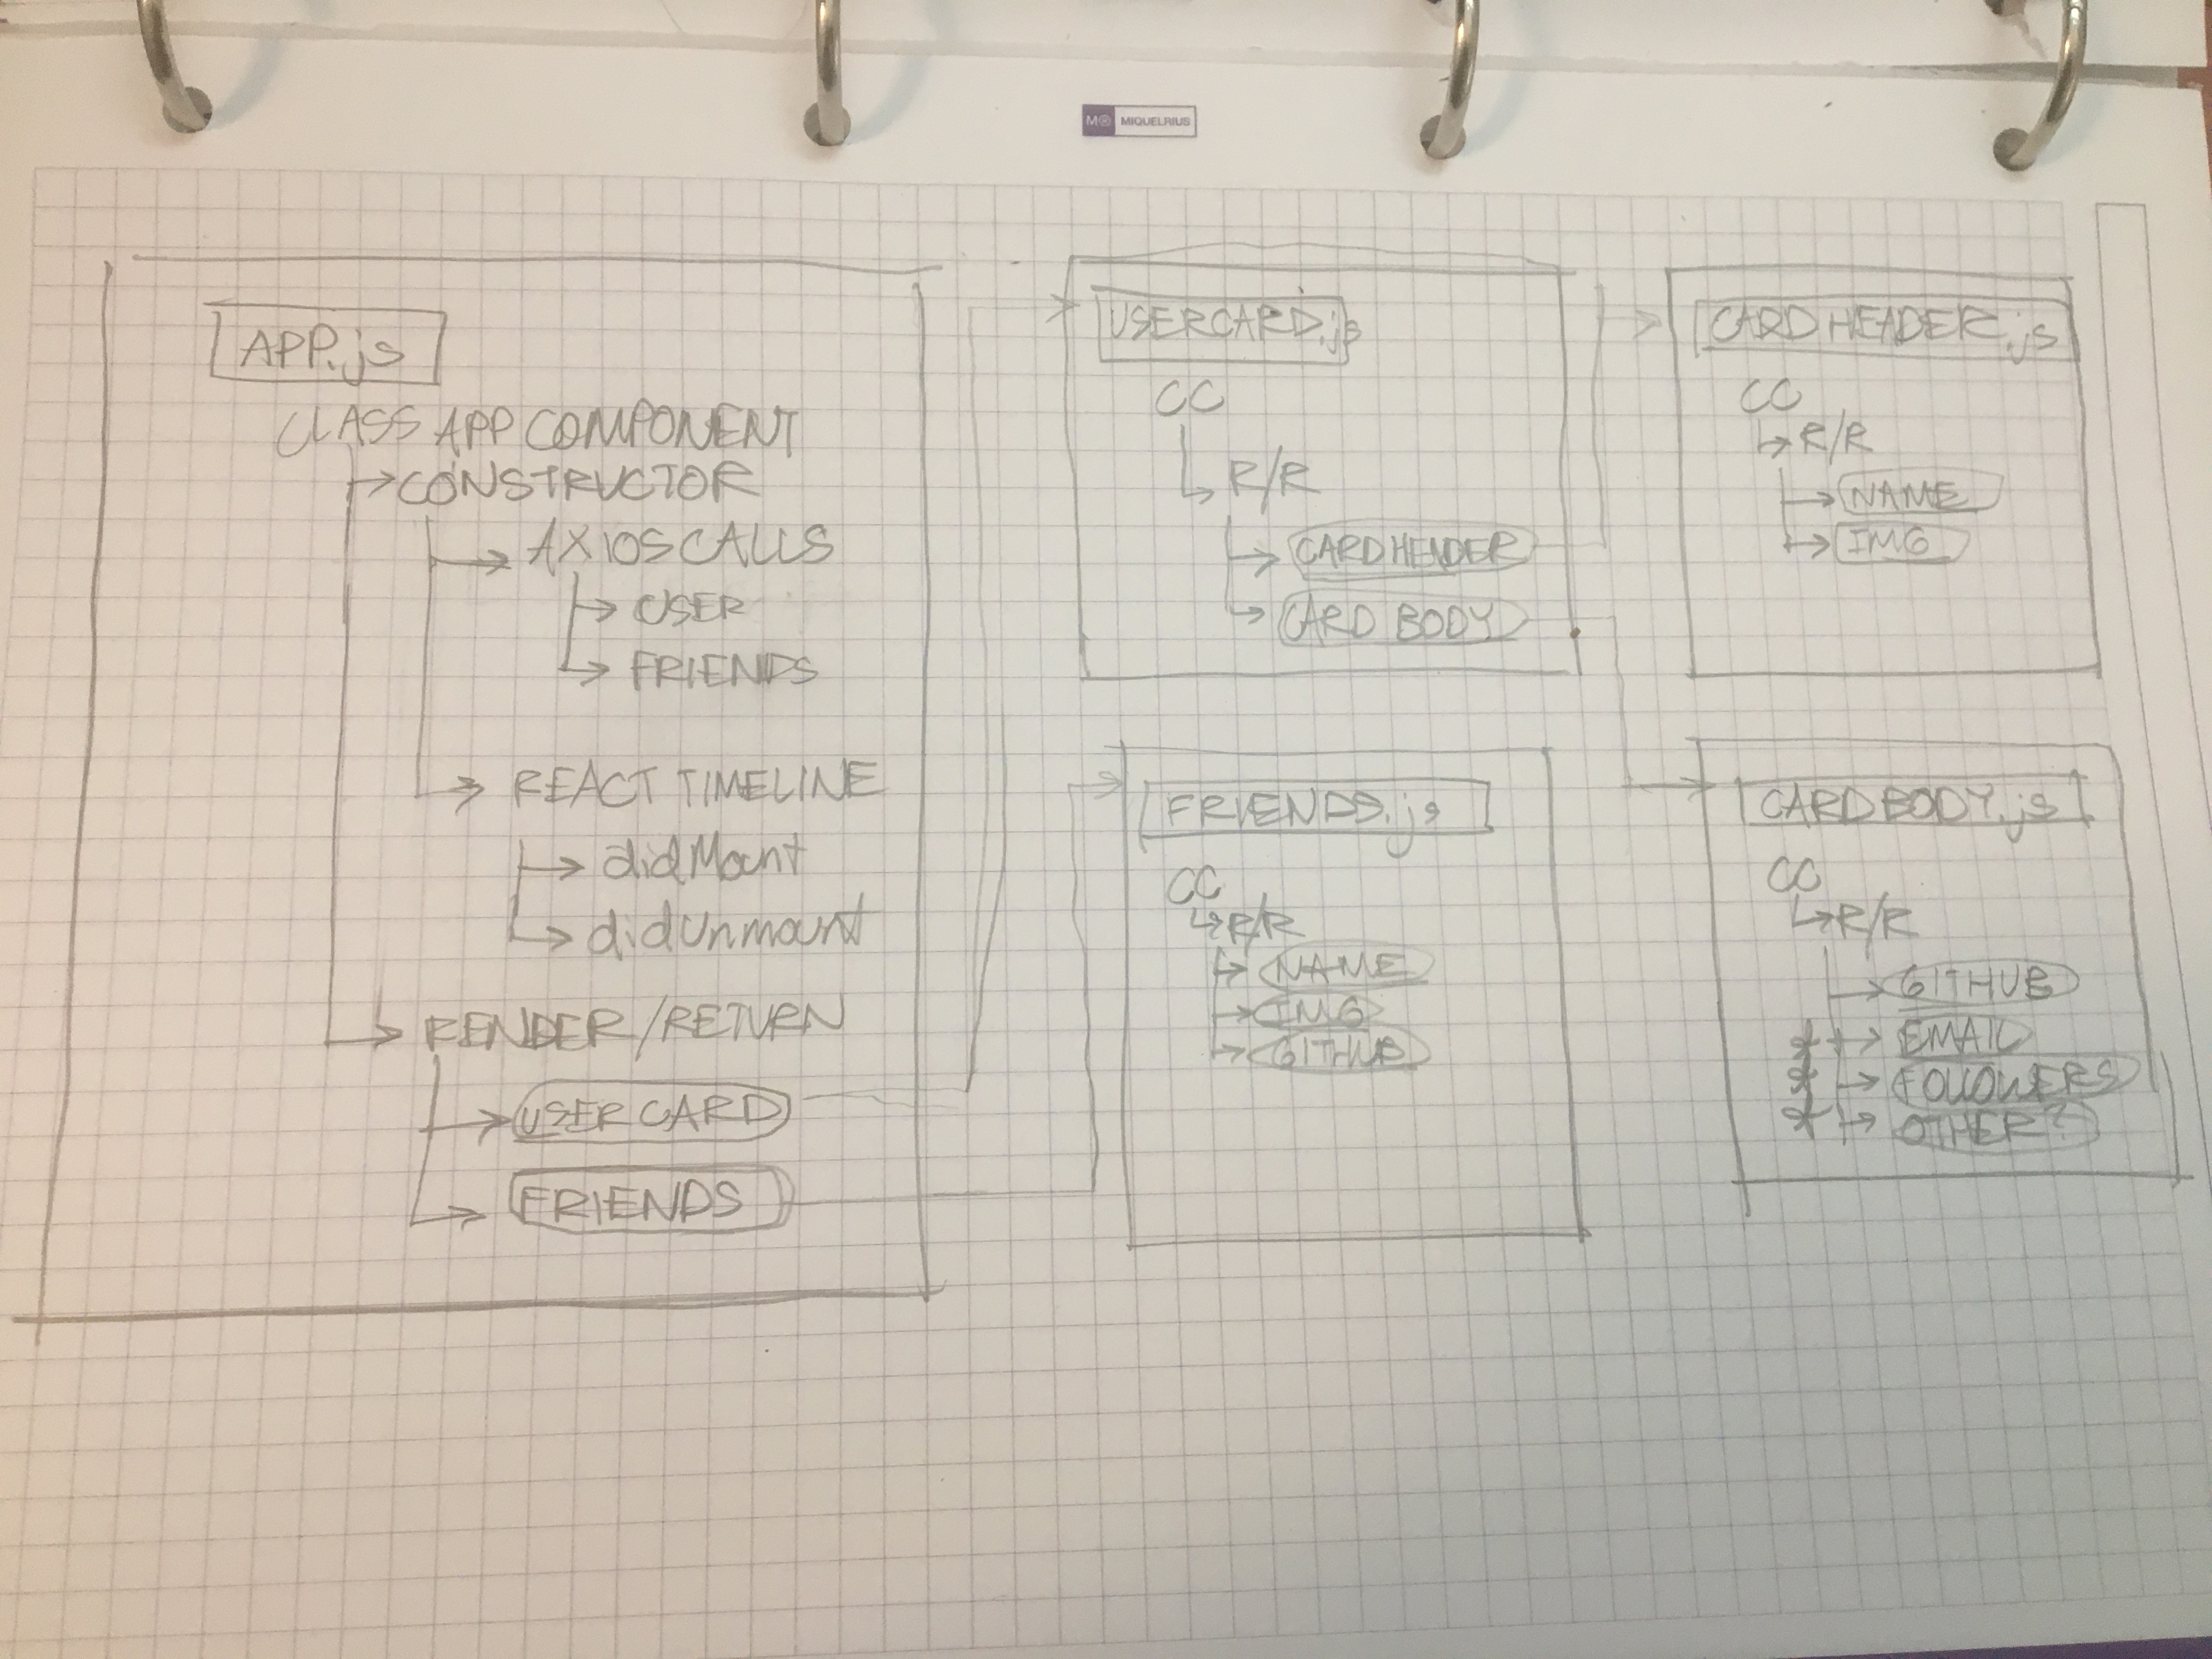 M® MIQUELRIUS
APP.js
CLASS APP COMPONENT
CONSTRUCTOR
AXIOS CALLS
USER
FRIENDS
REACT TIMELINE
didMount
didUnmount
RENDER/RETURN
USER CARD
FRIENDS
USERCARD.js
CC
R/R
CARDHEADER
CARD BODY
FRIENDS.js
CC
R/R
NAME
IMG
GITHUB
CARD HEADER.js
CC
R/R
NAME
IMG
CARD BODY.js
CC
R/R
GITHUB
EMAIL
FOLLOWERS
OTHER?